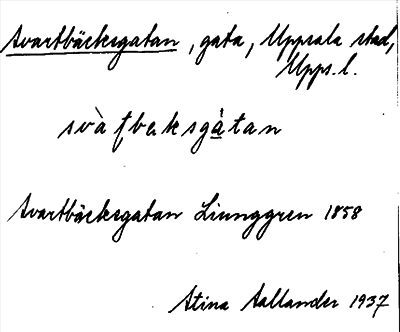 Svartbäcksgatan, gata, Uppsala stad,
Upps. l.
svàʈbaksgàtan
Svartbäcksgatan Liunggren 1858
Stina Sallander 1937